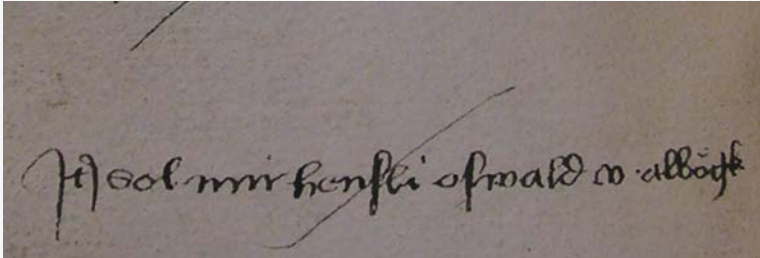 It sol mir hensli oswald v · alböck